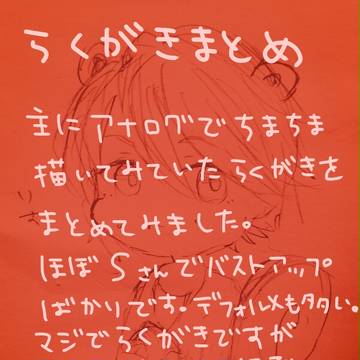 らくがきまとめ
主にアナログでちまちま
描いてみていたらくがきを
まとめてみました。
ほぼSさんでバストアップ
ばかりです。デフォルメも多い。
マジでらくがきですが